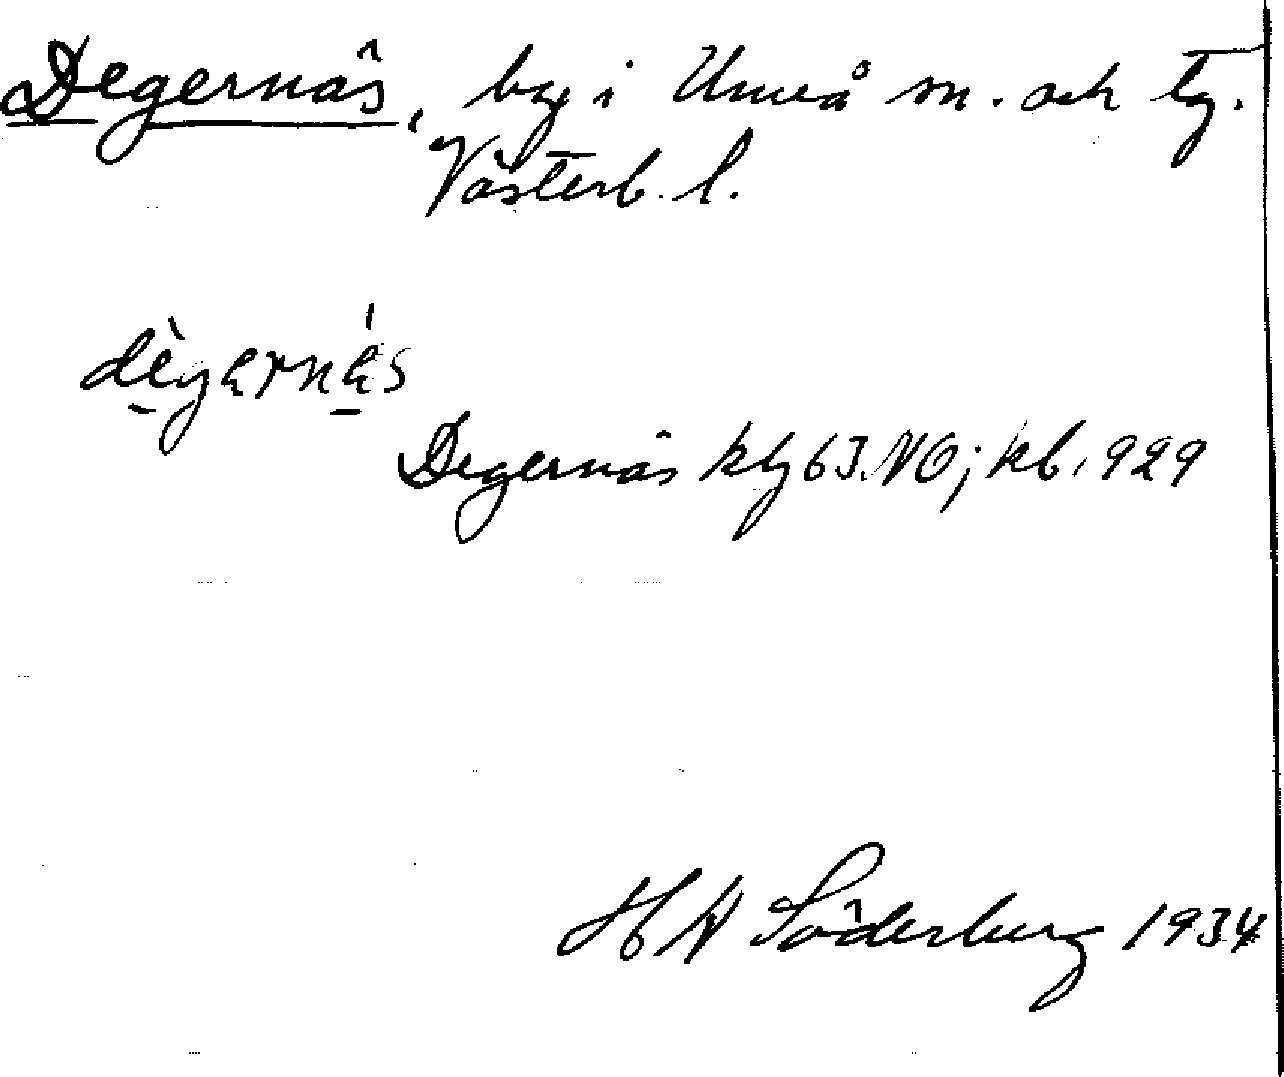 Degernäs, by i Umeå sn. och tg.
Västerb. l.
dègärnä́s
Degernäs kbl 63.NO; kb. 929
H W Söderberg 1934